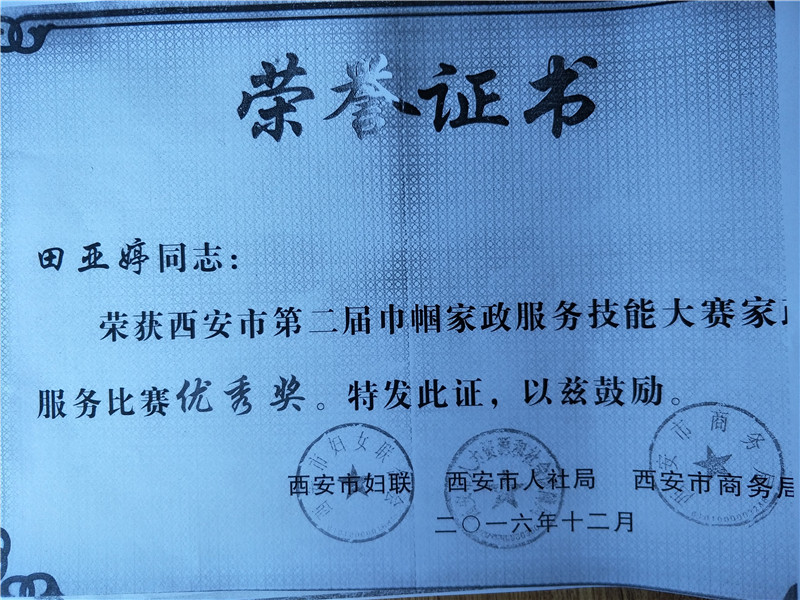 荣誉证书
田亚婷同志：
荣获西安市第二届巾帼家政服务技能大赛家
服务比赛优秀奖。特发此证，以兹鼓励。
西安市妇联 西安市人社局 西安市商务局
二〇一六年十二月